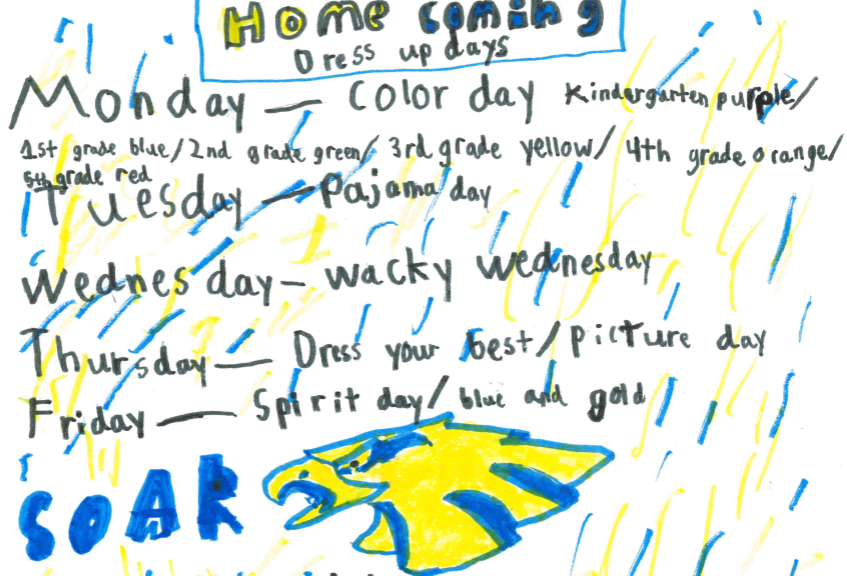 Home coming
Dress up days
Monday — Color day Kindergarten purple/
1st grade blue/2nd grade green/ 3rd grade yellow/ 4th grade orange/
5th grade red
Tuesday — Pajama day
Wednesday — wacky wednesday
Thursday — Dress your best/picture day
Friday — Spirit day/ blue and gold
SOAR